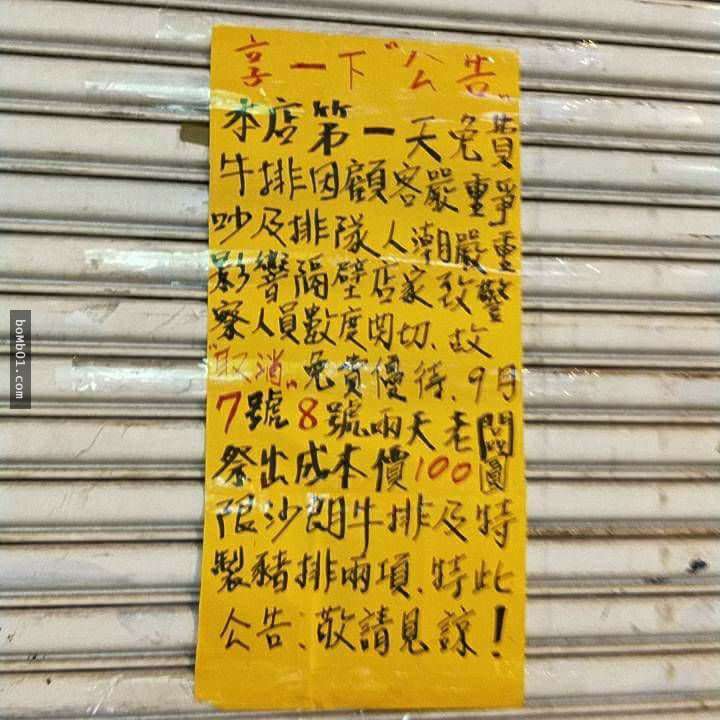 享一下"公告"
本店第一天免費
牛排因顧客嚴重爭
吵及排隊人潮嚴重
影響隔壁店家致警
察人員數度関切、故
"取消"免費優待、9月
7號8號兩天老闆
祭出成本價100圓
限沙朗牛排及特
製豬排兩項、特此
公告、敬請見諒！
boMb01.com